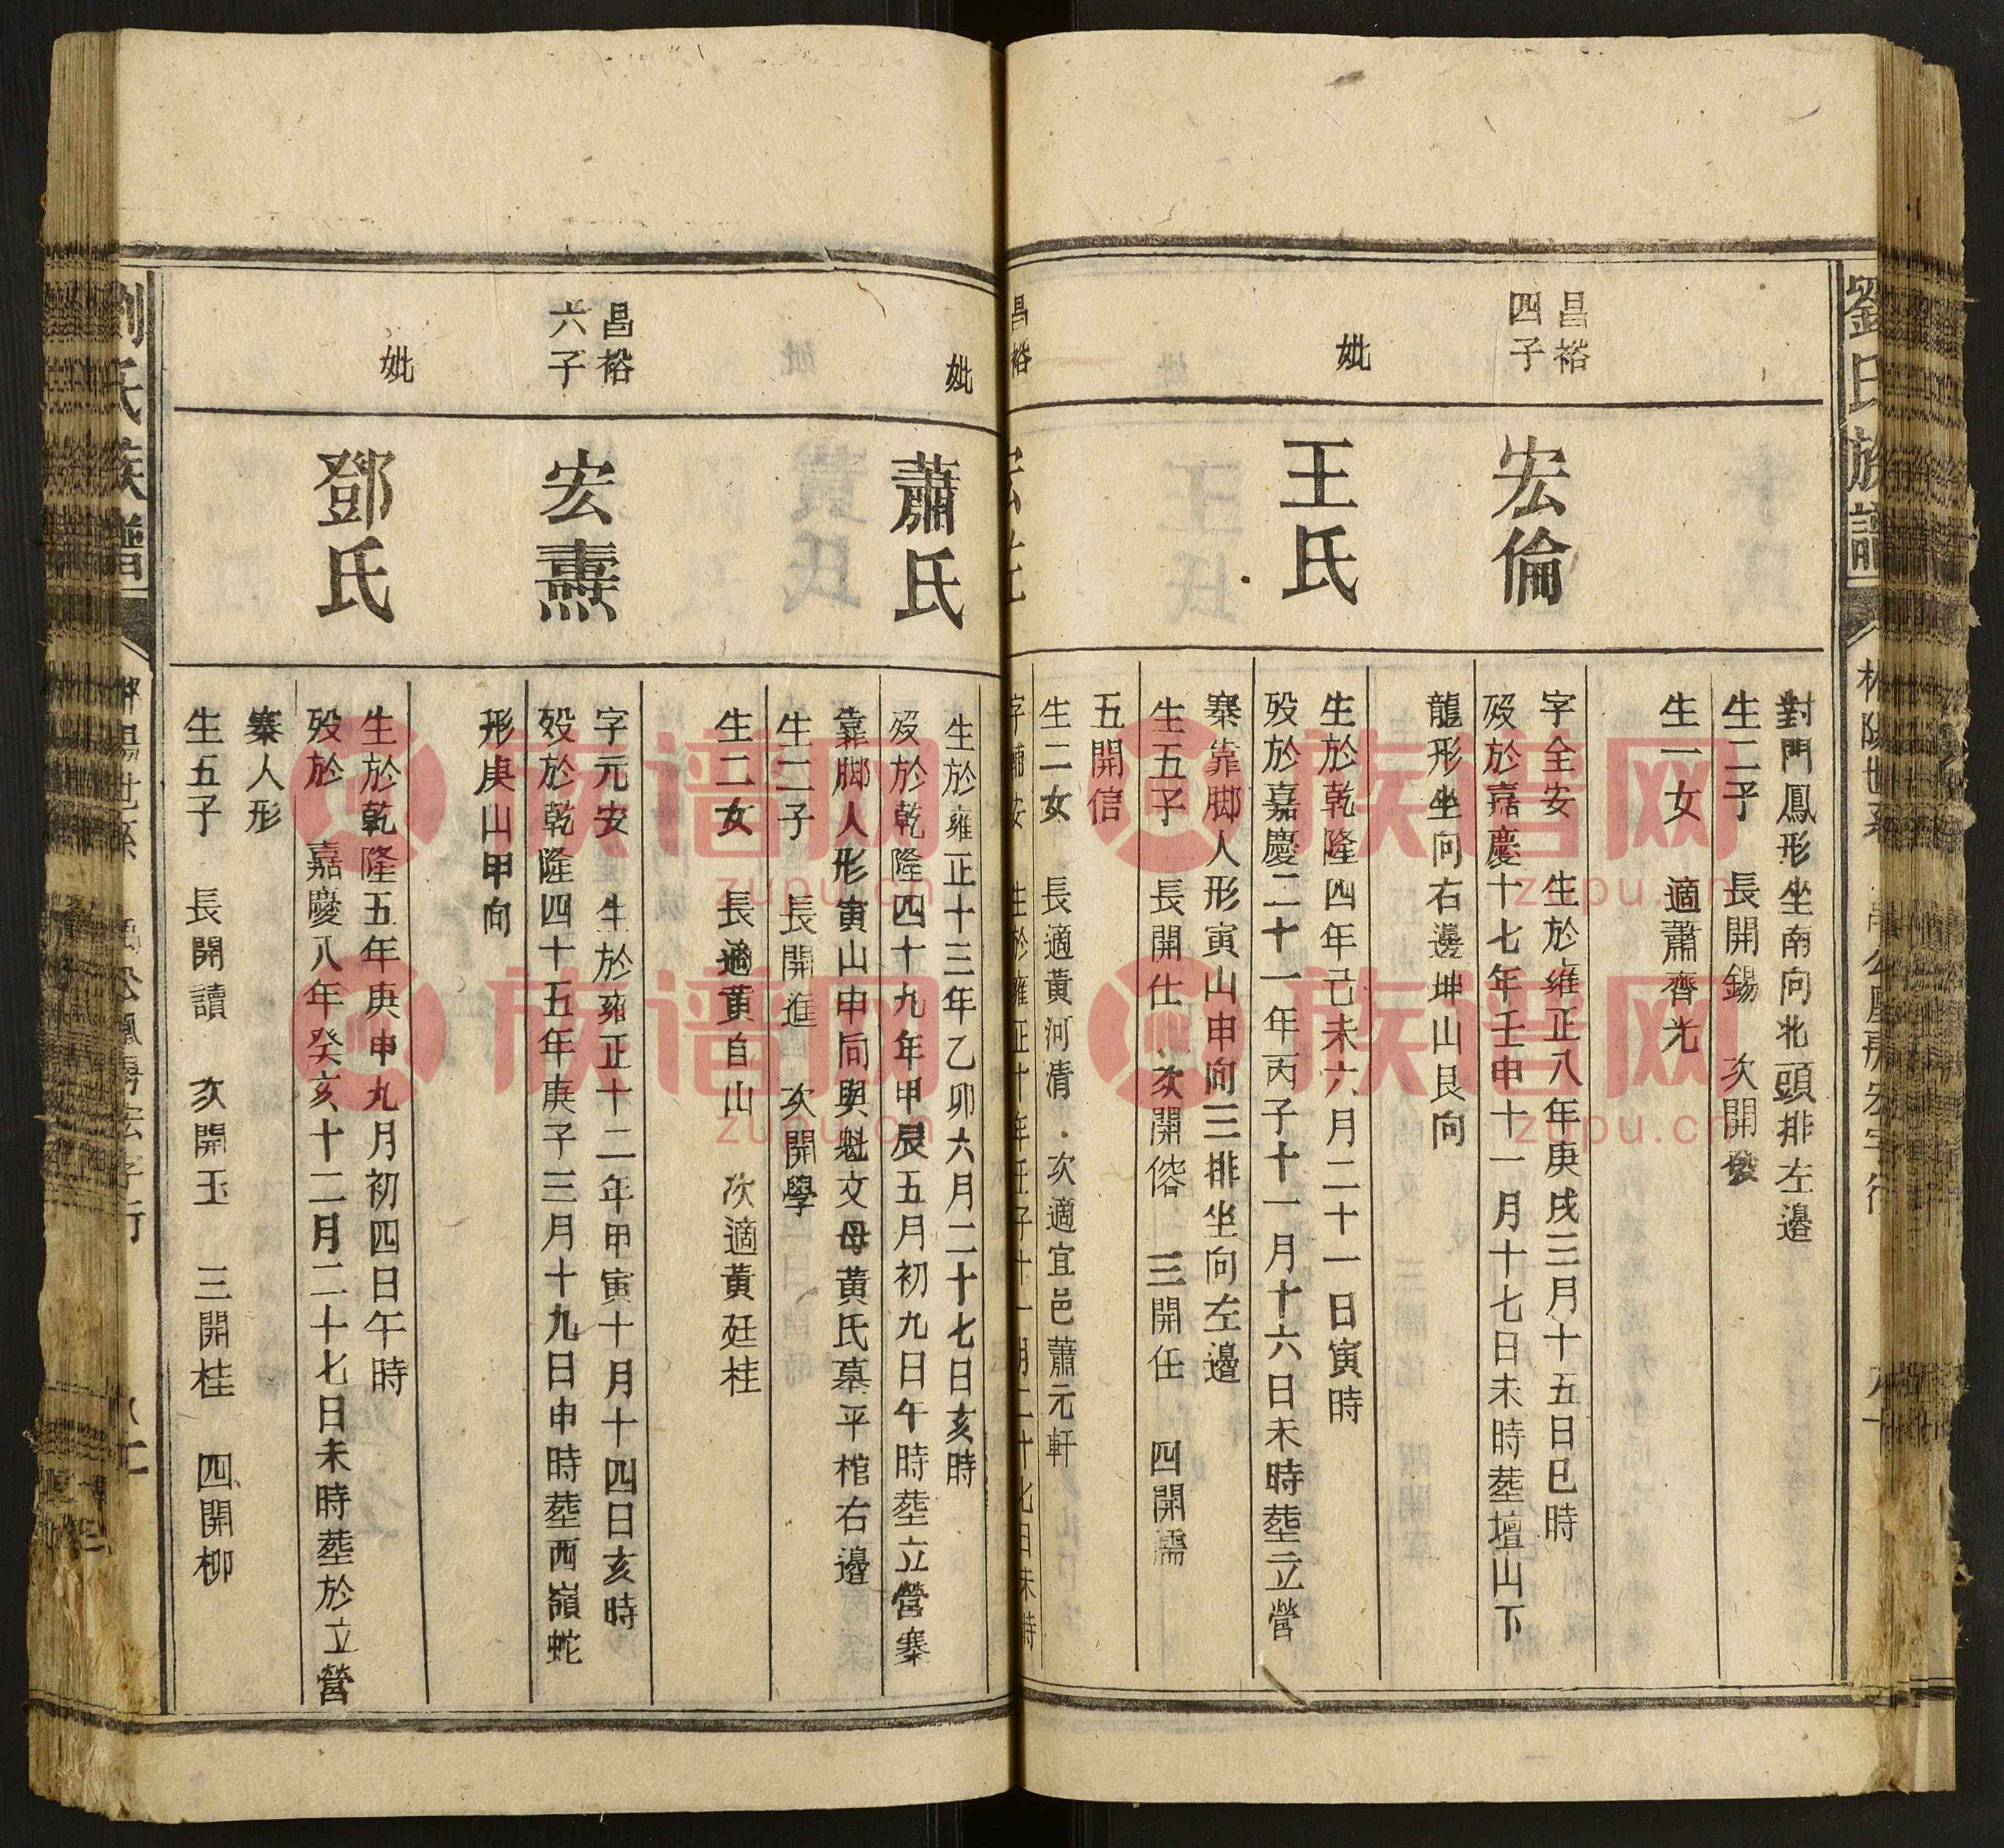 劉氏族譜
對門鳳形坐南向北頭排左邊
生二子 長開錫 次開發
生一女 適蕭齊光
昌裕
四子
宏倫
字全安 生於雍正八年庚戌三月十五日巳時
歿於嘉慶十七年壬申十一月十七日未時塟壇山下
龍形坐向右邊坤山艮向
妣
王氏
生於乾隆四年己未六月二十一日寅時
歿於嘉慶二十一年丙子十一月十六日未時塟立營
寨靠脚人形寅山申向三排坐向左邊
生五子 長開仕 次開傛 三開任 四開濡
五開信
生二女 長適黃河清 次適宜邑蕭元軒
昌裕
字輔安 生於雍正十年壬子十一月二十七日未時
妣
蕭氏
生於雍正十三年乙卯六月二十七日亥時
歿於乾隆四十九年甲辰五月初九日午時塟立營寨
靠脚人形寅山申向與魁文母黃氏墓平棺右邊
生二子 長開進 次開學
生二女 長適黃自山 次適黃廷桂
昌裕
六子
宏燾
字元安 生於雍正十二年甲寅十月十四日亥時
歿於乾隆四十五年庚子三月十九日申時塟西嶺蛇
形庚山甲向
妣
鄧氏
生於乾隆五年庚申九月初四日午時
歿於 嘉慶八年癸亥十二月二十七日未時塟於立營
寨人形
生五子 長開讀 次開玉 三開桂 四開柳
劉氏族譜
族谱网
zupu.cn
族谱网
zupu.cn
族谱网
zupu.cn
族谱网
zupu.cn